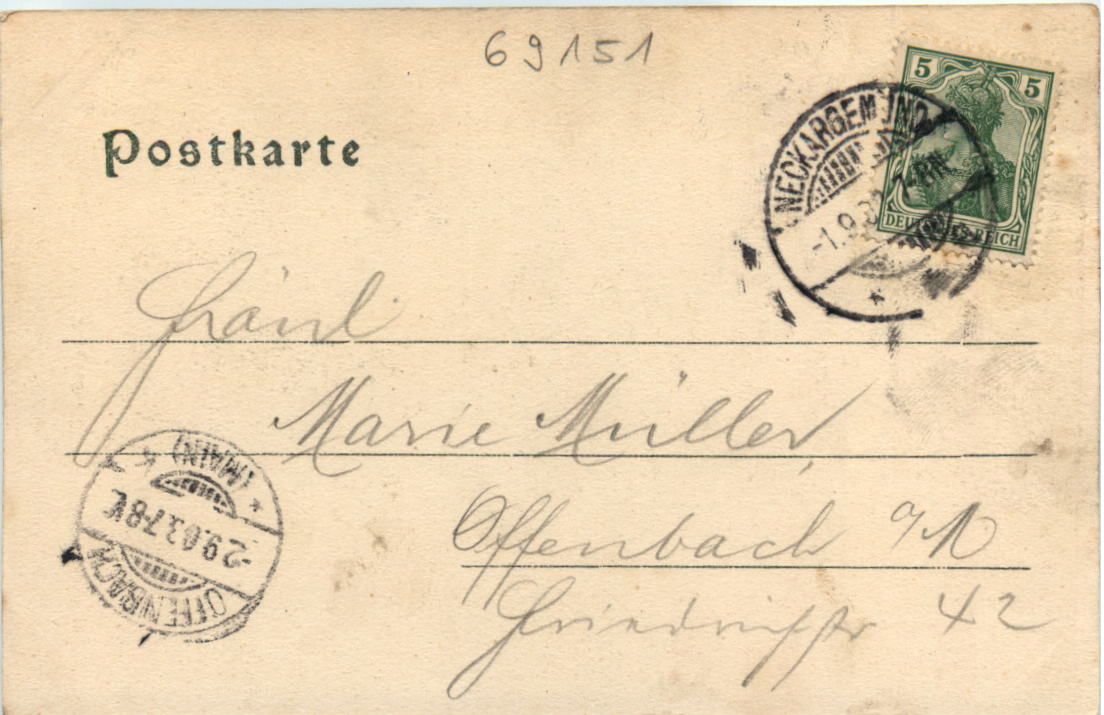 69151
5 5
DEUTSCHES REICH
NECKARGEMÜND
-1.9.03 7-8N.
Postkarte
Fräul
Marie Müller,
Offenbach a/M
Friedrichstr 42
OFFENBACH
-2.9.03.7-8V.
* (MAIN) *